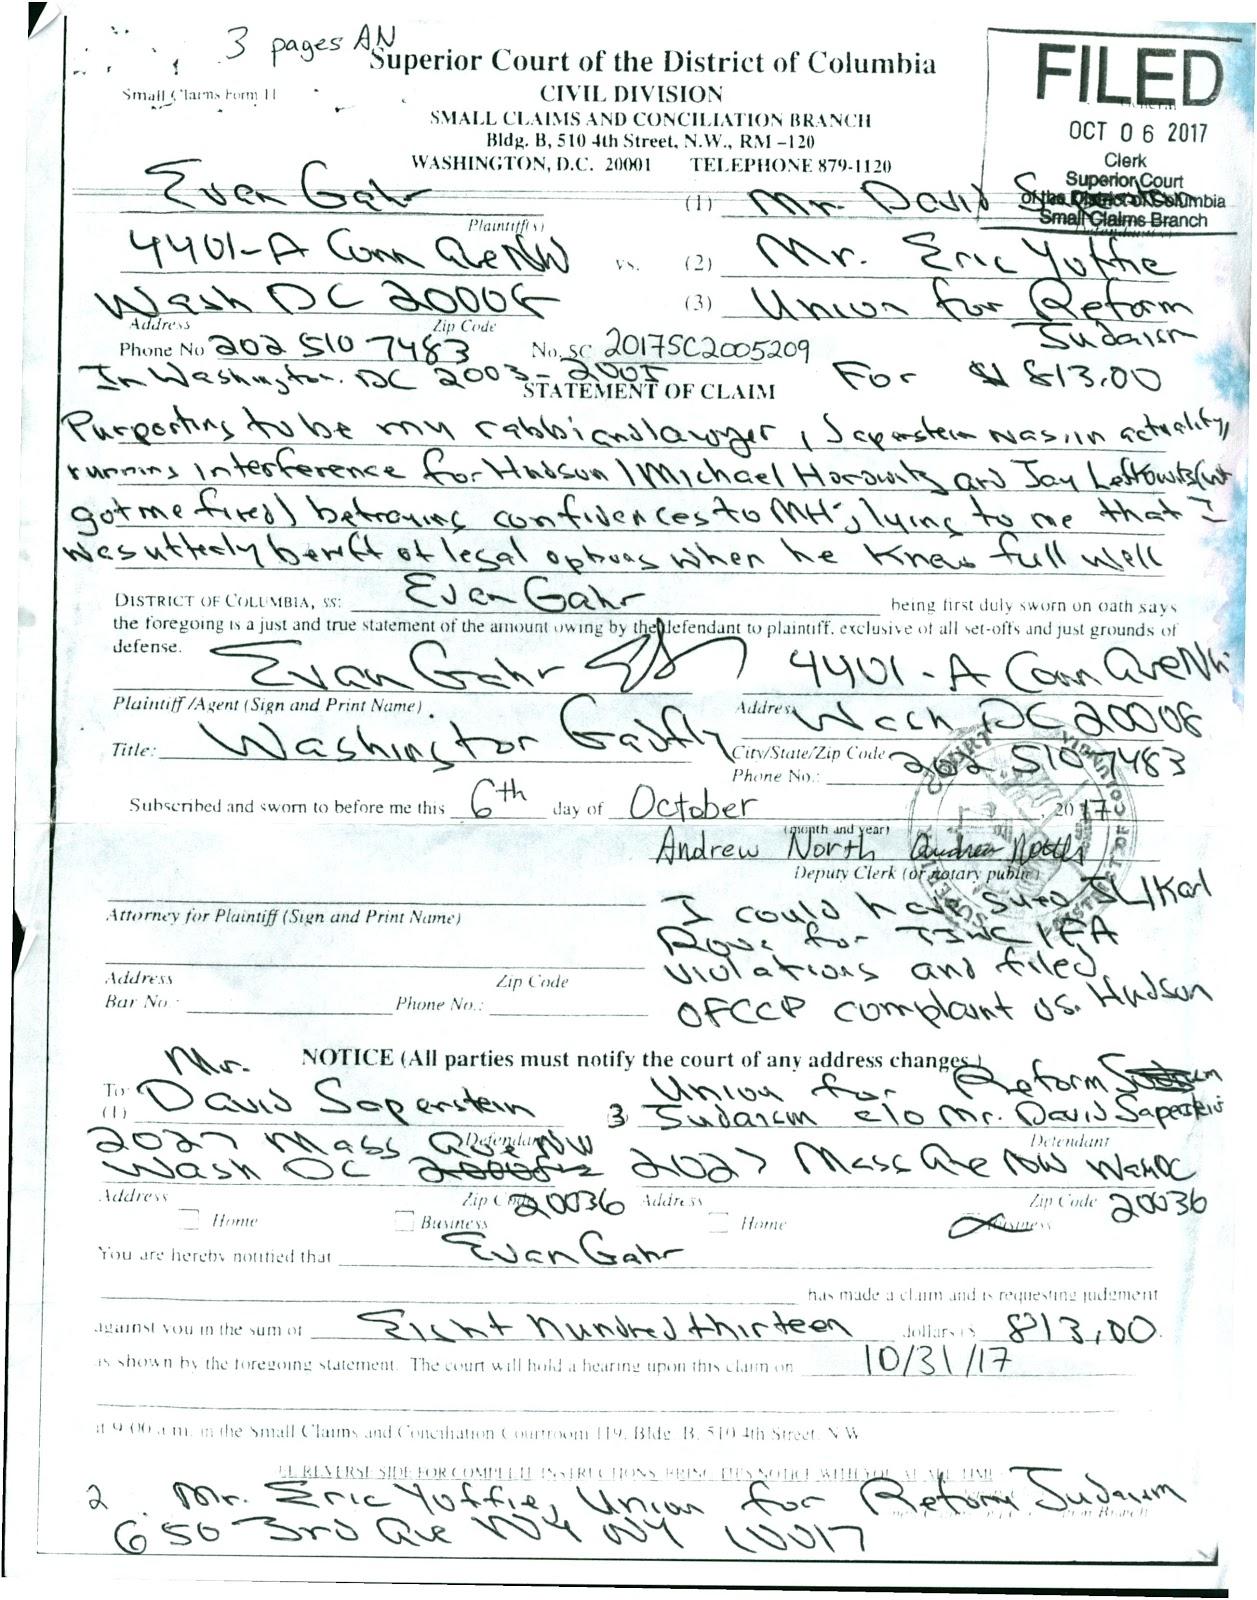 3 pages AN
Superior Court of the District of Columbia
Small Claims Form 11
CIVIL DIVISION
SMALL CLAIMS AND CONCILIATION BRANCH
Bldg. B, 510 4th Street, N.W., RM -120
WASHINGTON, D.C. 20001 TELEPHONE 879-1120
FILED
OCT 06 2017
Clerk
Superior Court
of the District of Columbia
Small Claims Branch
Evan Gahr
(1) Mr. David
Plaintiff(s)
4401-A Conn Ave NW vs. (2) Mr. Eric Yoffie
Wash DC 20008 (3) Union for Reform Judaism
Address Zip Code
Phone No 202 510 7483 No. SC 2017SC2005209
In Washington, DC 2003-2005 For $ 813.00
STATEMENT OF CLAIM
Purporting to be my rabbi and lawyer, Saperstein was, in actuality,
running interference for Hudson/Michael Horowitz and Jay Lefkowitz (who
got me fired) betraying confidences to MH; lying to me that I
was utterly bereft of legal options when he knew full well
DISTRICT OF COLUMBIA, ss: Evan Gahr being first duly sworn on oath says
the foregoing is a just and true statement of the amount owing by the defendant to plaintiff, exclusive of all set-offs and just grounds of
defense.
Evan Gahr 4401-A Conn Ave NW
Plaintiff/Agent (Sign and Print Name) Address Wash DC 20008
Title: Washington Gadfly City/State/Zip Code
Phone No.: 202 510 7483
Subscribed and sworn to before me this 6th day of October 2017
(month and year)
Andrew North Andrew North
Deputy Clerk (or notary public)
I could have sued JL/Karl
Attorney for Plaintiff (Sign and Print Name)
Rove for violations and filed
OFCCP complaint vs. Hudson
Address Zip Code
Bar No.: Phone No.:
NOTICE (All parties must notify the court of any address changes.)
To: Mr.
(1) David Saperstein 3 Union for Reform
Judaism c/o Mr. David Saperstein
Defendant Defendant
2027 Mass Ave NW 2027 Mass Ave NW Wash DC
Wash DC 20036 20036
Address Zip Code Address Zip Code
Home Business Home Business
You are hereby notified that Evan Gahr
has made a claim and is requesting judgment
against you in the sum of Eight hundred thirteen dollars ($ 813.00
as shown by the foregoing statement. The court will hold a hearing upon this claim on 10/31/17
at 9:00 a.m. in the Small Claims and Conciliation Courtroom 119, Bldg. B, 510 4th Street, N.W.
REVERSE SIDE FOR COMPLETE INSTRUCTIONS. BRING THIS NOTICE WITH YOU AT ALL TIME
2 Mr. Eric Yoffie, Union for Reform Judaism
650 3rd Ave NY NY 10017